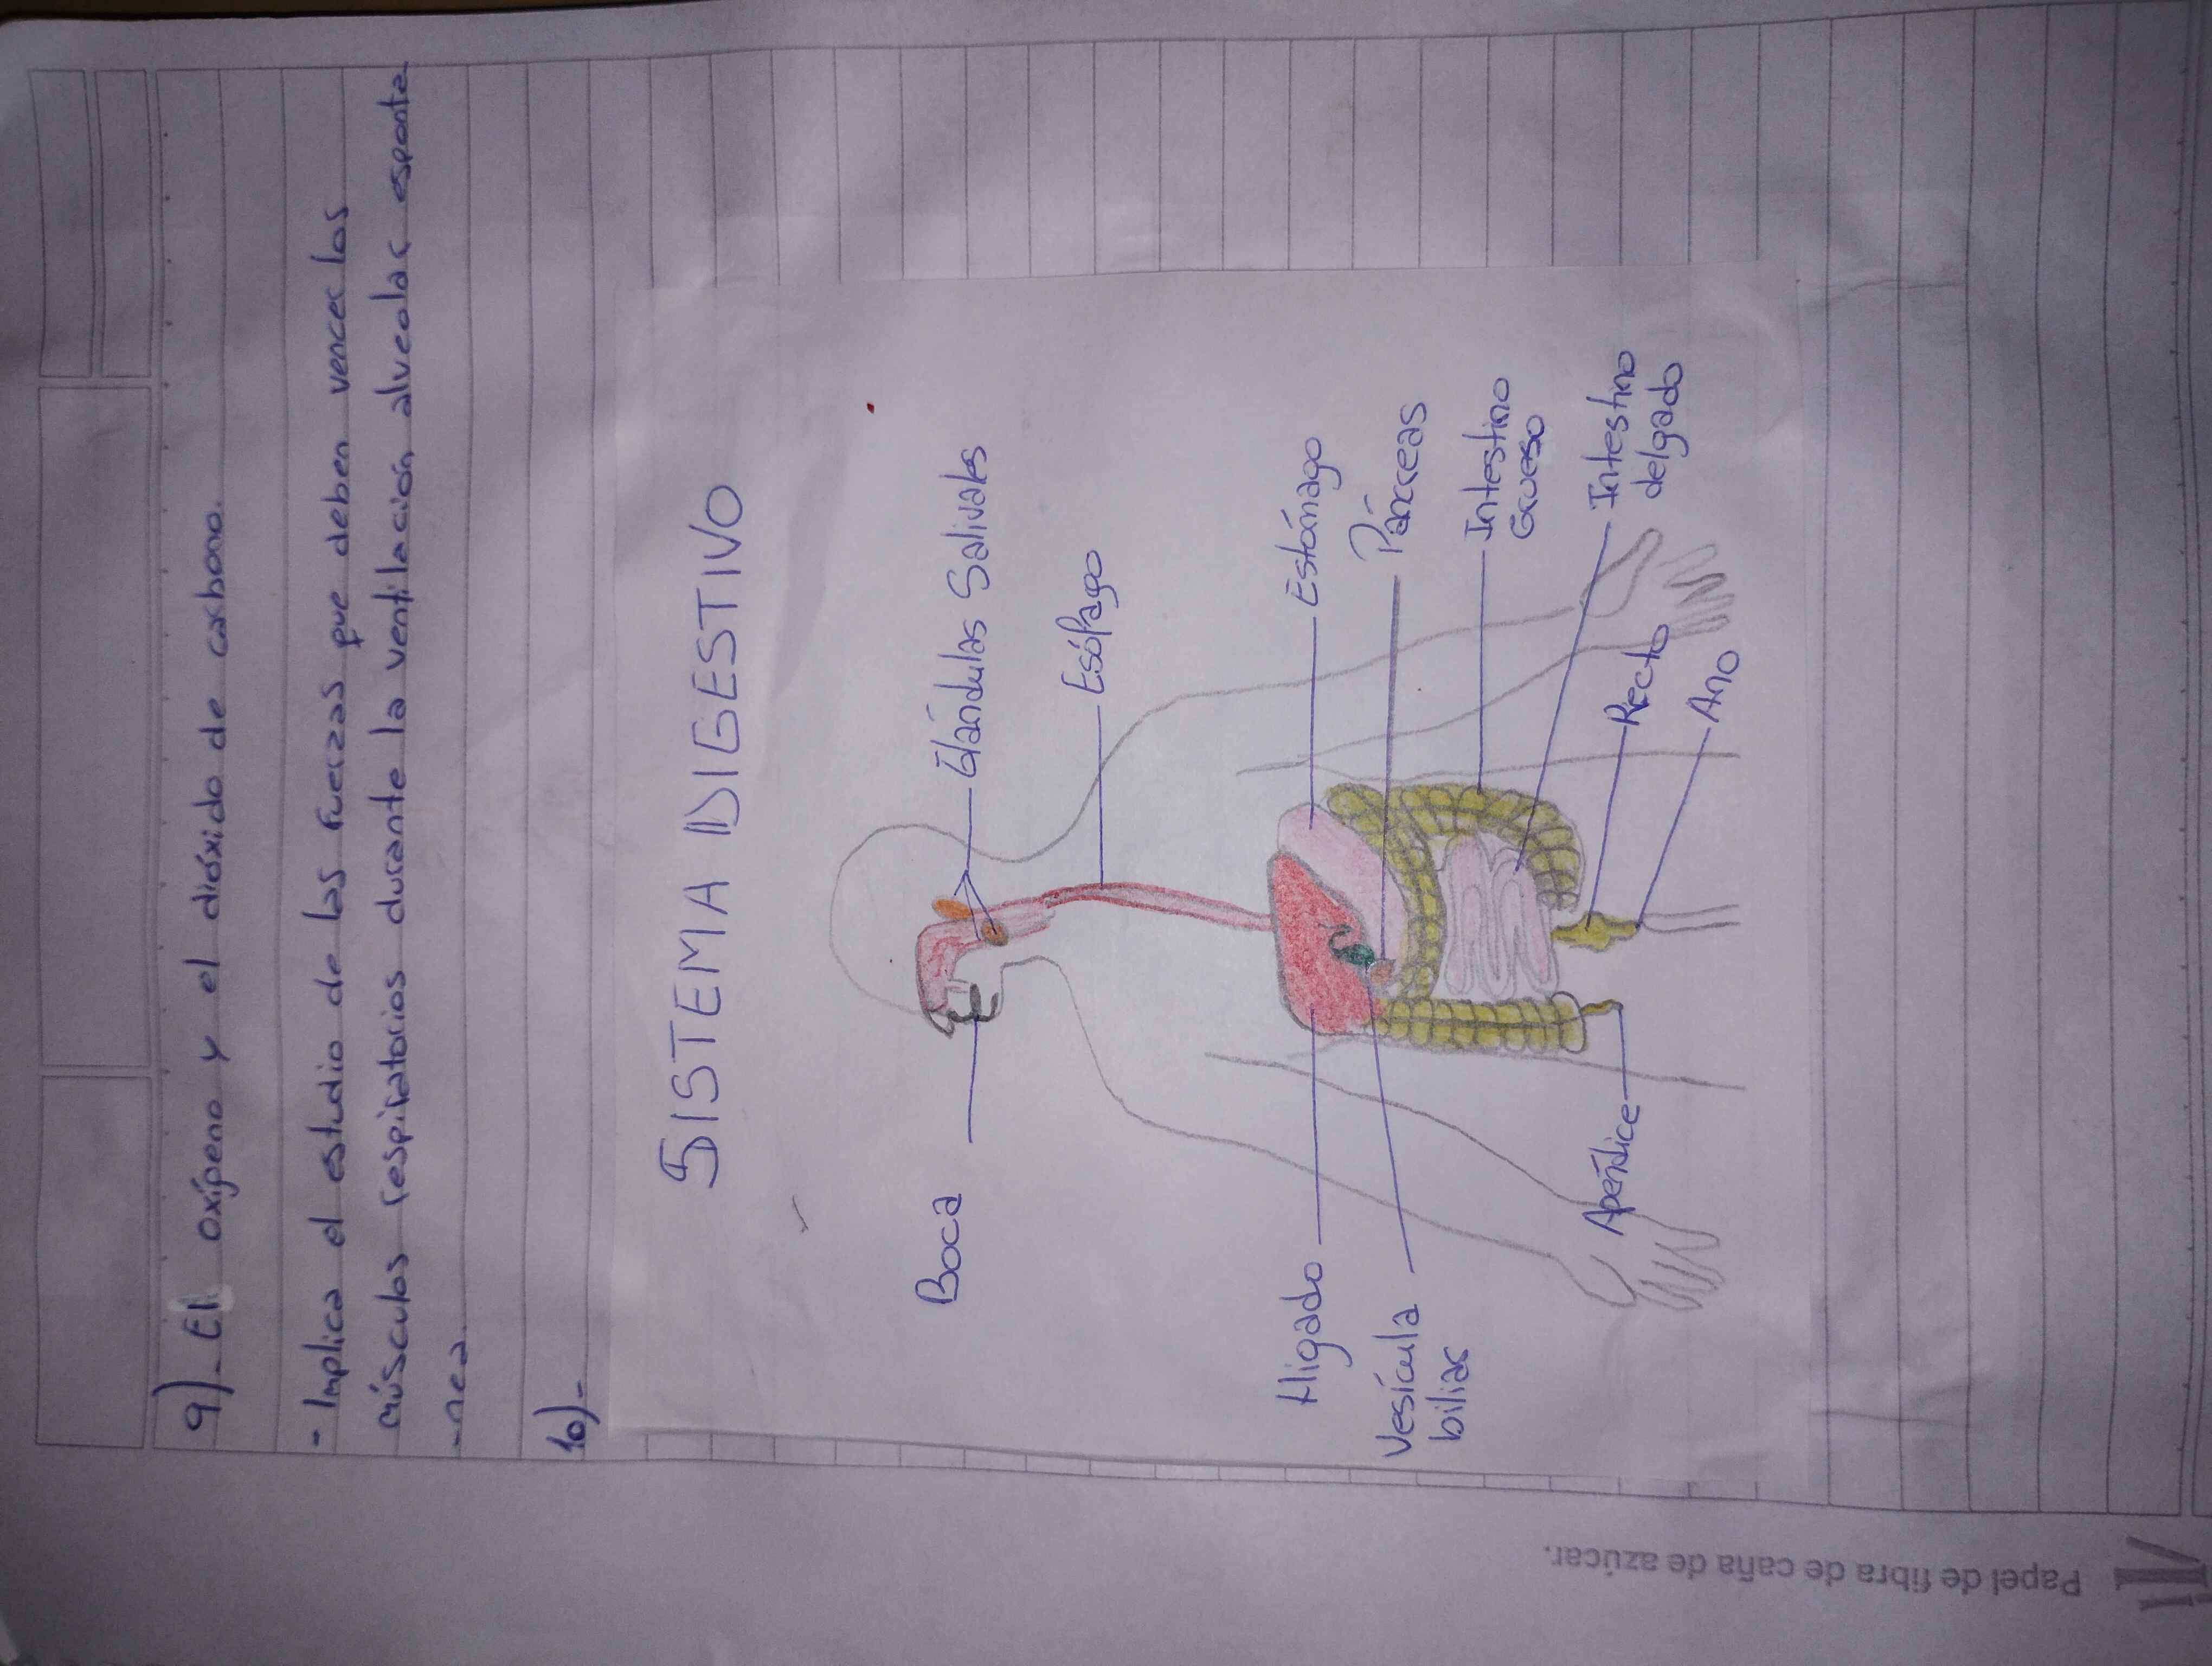 9)- El oxígeno y el dióxido de carbono.
- Implica el estudio de las fuerzas que deben vencer los
músculos respiratorios durante la ventilación alveolar esponta
-nea.
10)-
SISTEMA DIGESTIVO
Boca
Glándulas Salivales
Esófago
Hígado
Estómago
Vesícula
biliar
Páncreas
Intestino
Grueso
Intestino
delgado
Apéndice
Recto
Ano
Papel de fibra de caña de azúcar.